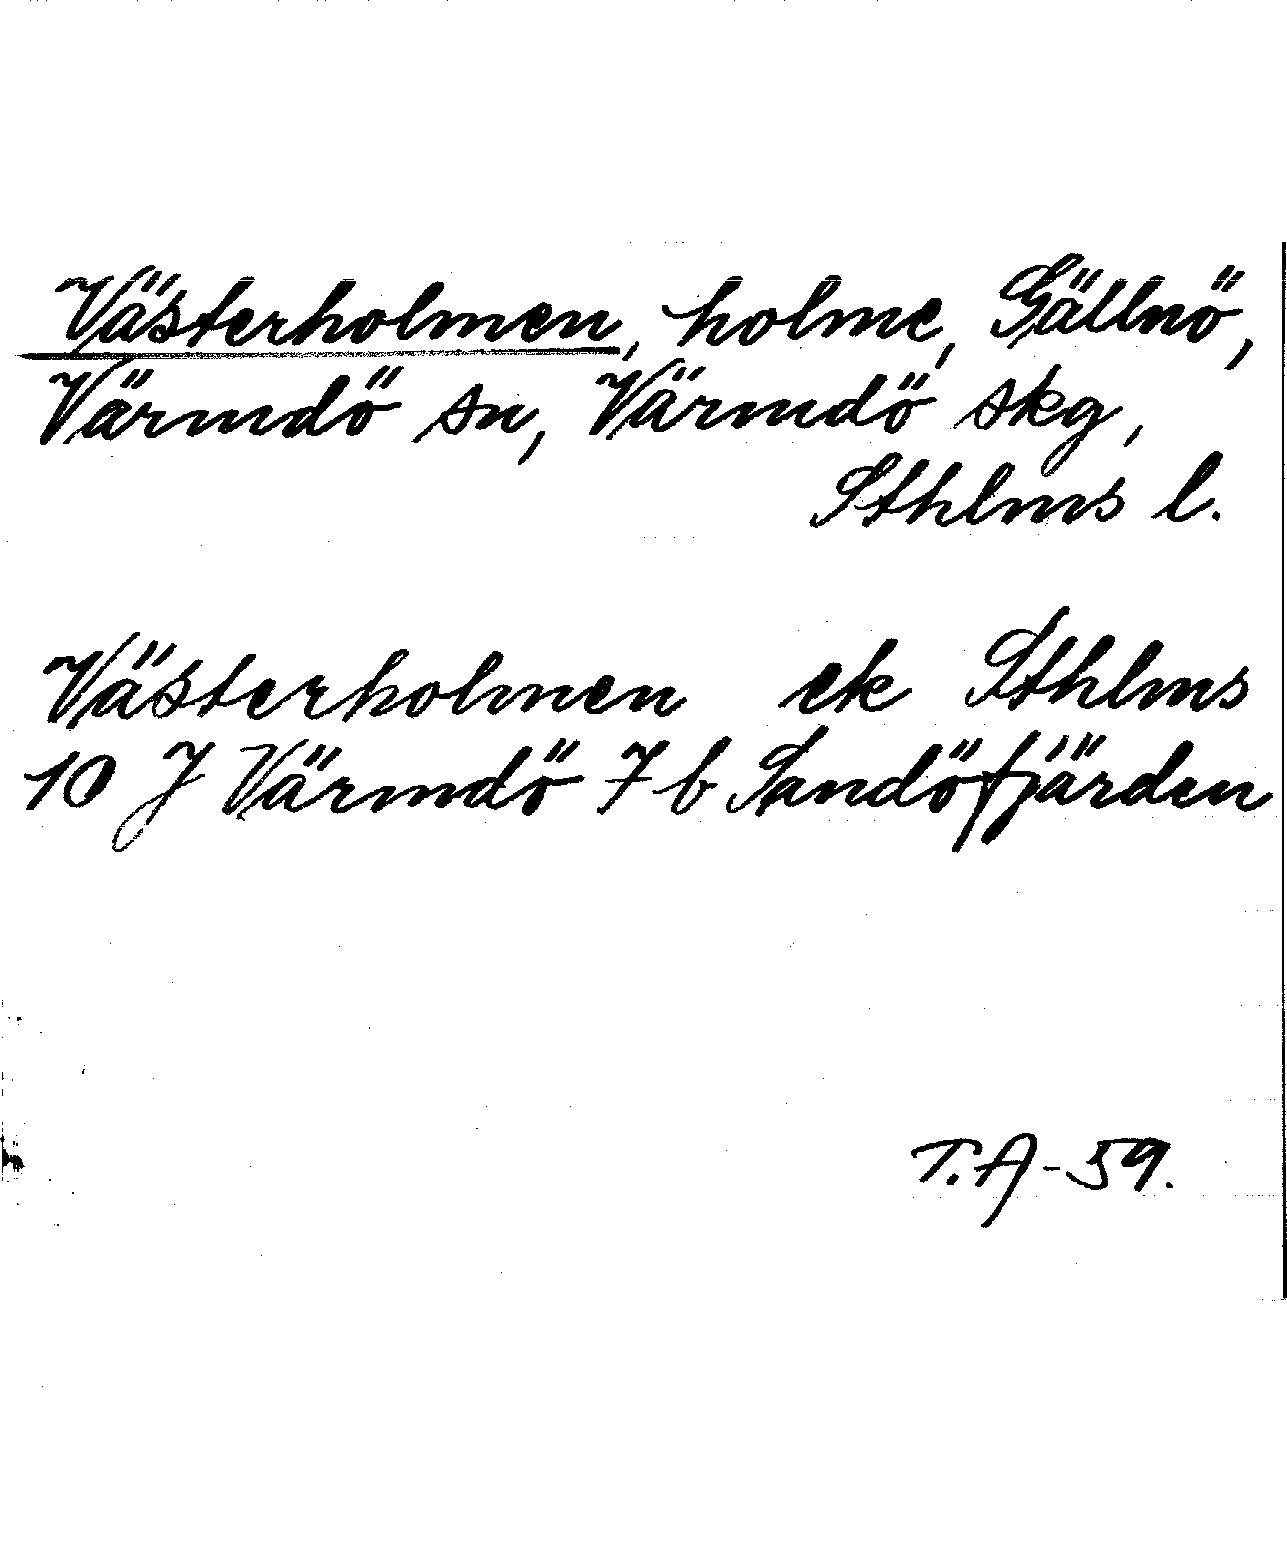 Västerholmen, holme, Gällnö,
Värmdö sn, Värmdö skg,
Sthlms l.
Västerholmen ek Sthlms
10 J Värmdö 7 b Sandöfjärden
T.A-59.